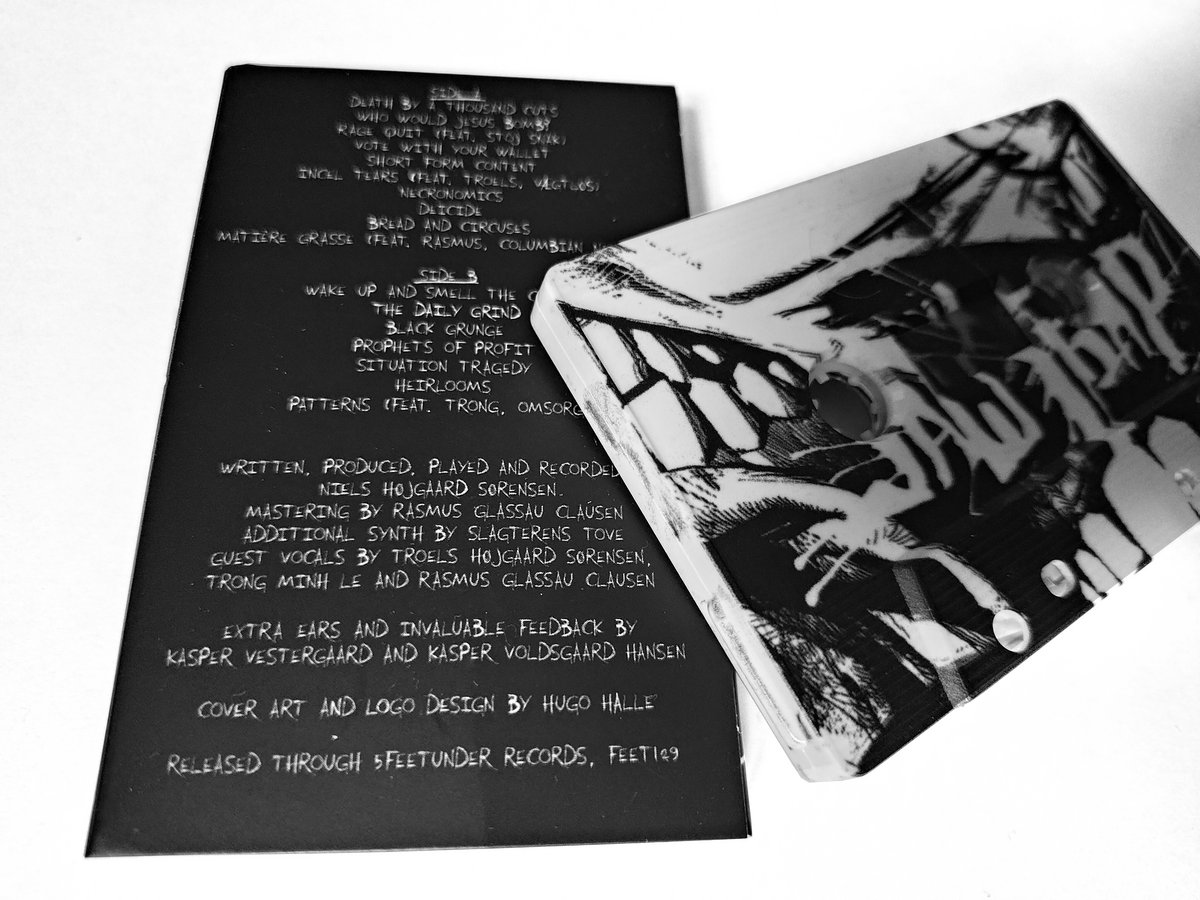 SIDE A
DEATH BY A THOUSAND CUTS
WHO WOULD JESUS BOMB?
RAGE QUIT (FEAT.
VOTE WITH YOUR WALLET
SHORT FORM CONTENT
INCEL TEARS (FEAT. TROELS, VÆGTLØS)
NECRONOMICS
DEICIDE
BREAD AND CIRCUSES
MATIÈRE GRASSE (FEAT. RASMUS, COLUMBIAN
SIDE B
WAKE UP AND SMELL THE
THE DAILY GRIND
BLACK GRUNGE
PROPHETS OF PROFIT
SITUATION TRAGEDY
HEIRLOOMS
PATTERNS (FEAT. TRONG, OMSORG
WRITTEN, PRODUCED, PLAYED AND RECORDED
NIELS HØJGAARD SØRENSEN.
MASTERING BY RASMUS GLASSAU CLAUSEN
ADDITIONAL SYNTH BY SLAGTERENS TOVE
GUEST VOCALS BY TROELS HØJGAARD SØRENSEN,
TRONG MINH LE AND RASMUS GLASSAU CLAUSEN
EXTRA EARS AND INVALUABLE FEEDBACK BY
KASPER VESTERGAARD AND KASPER VOLDSGAARD HANSEN
COVER ART AND LOGO DESIGN BY HUGO HALLE
RELEASED THROUGH 5FEETUNDER RECORDS, FEET129